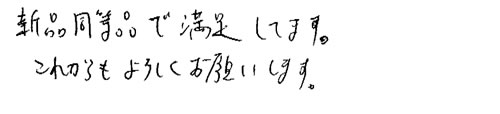 新品同等品で満足してます。
これからもよろしくお願いします。